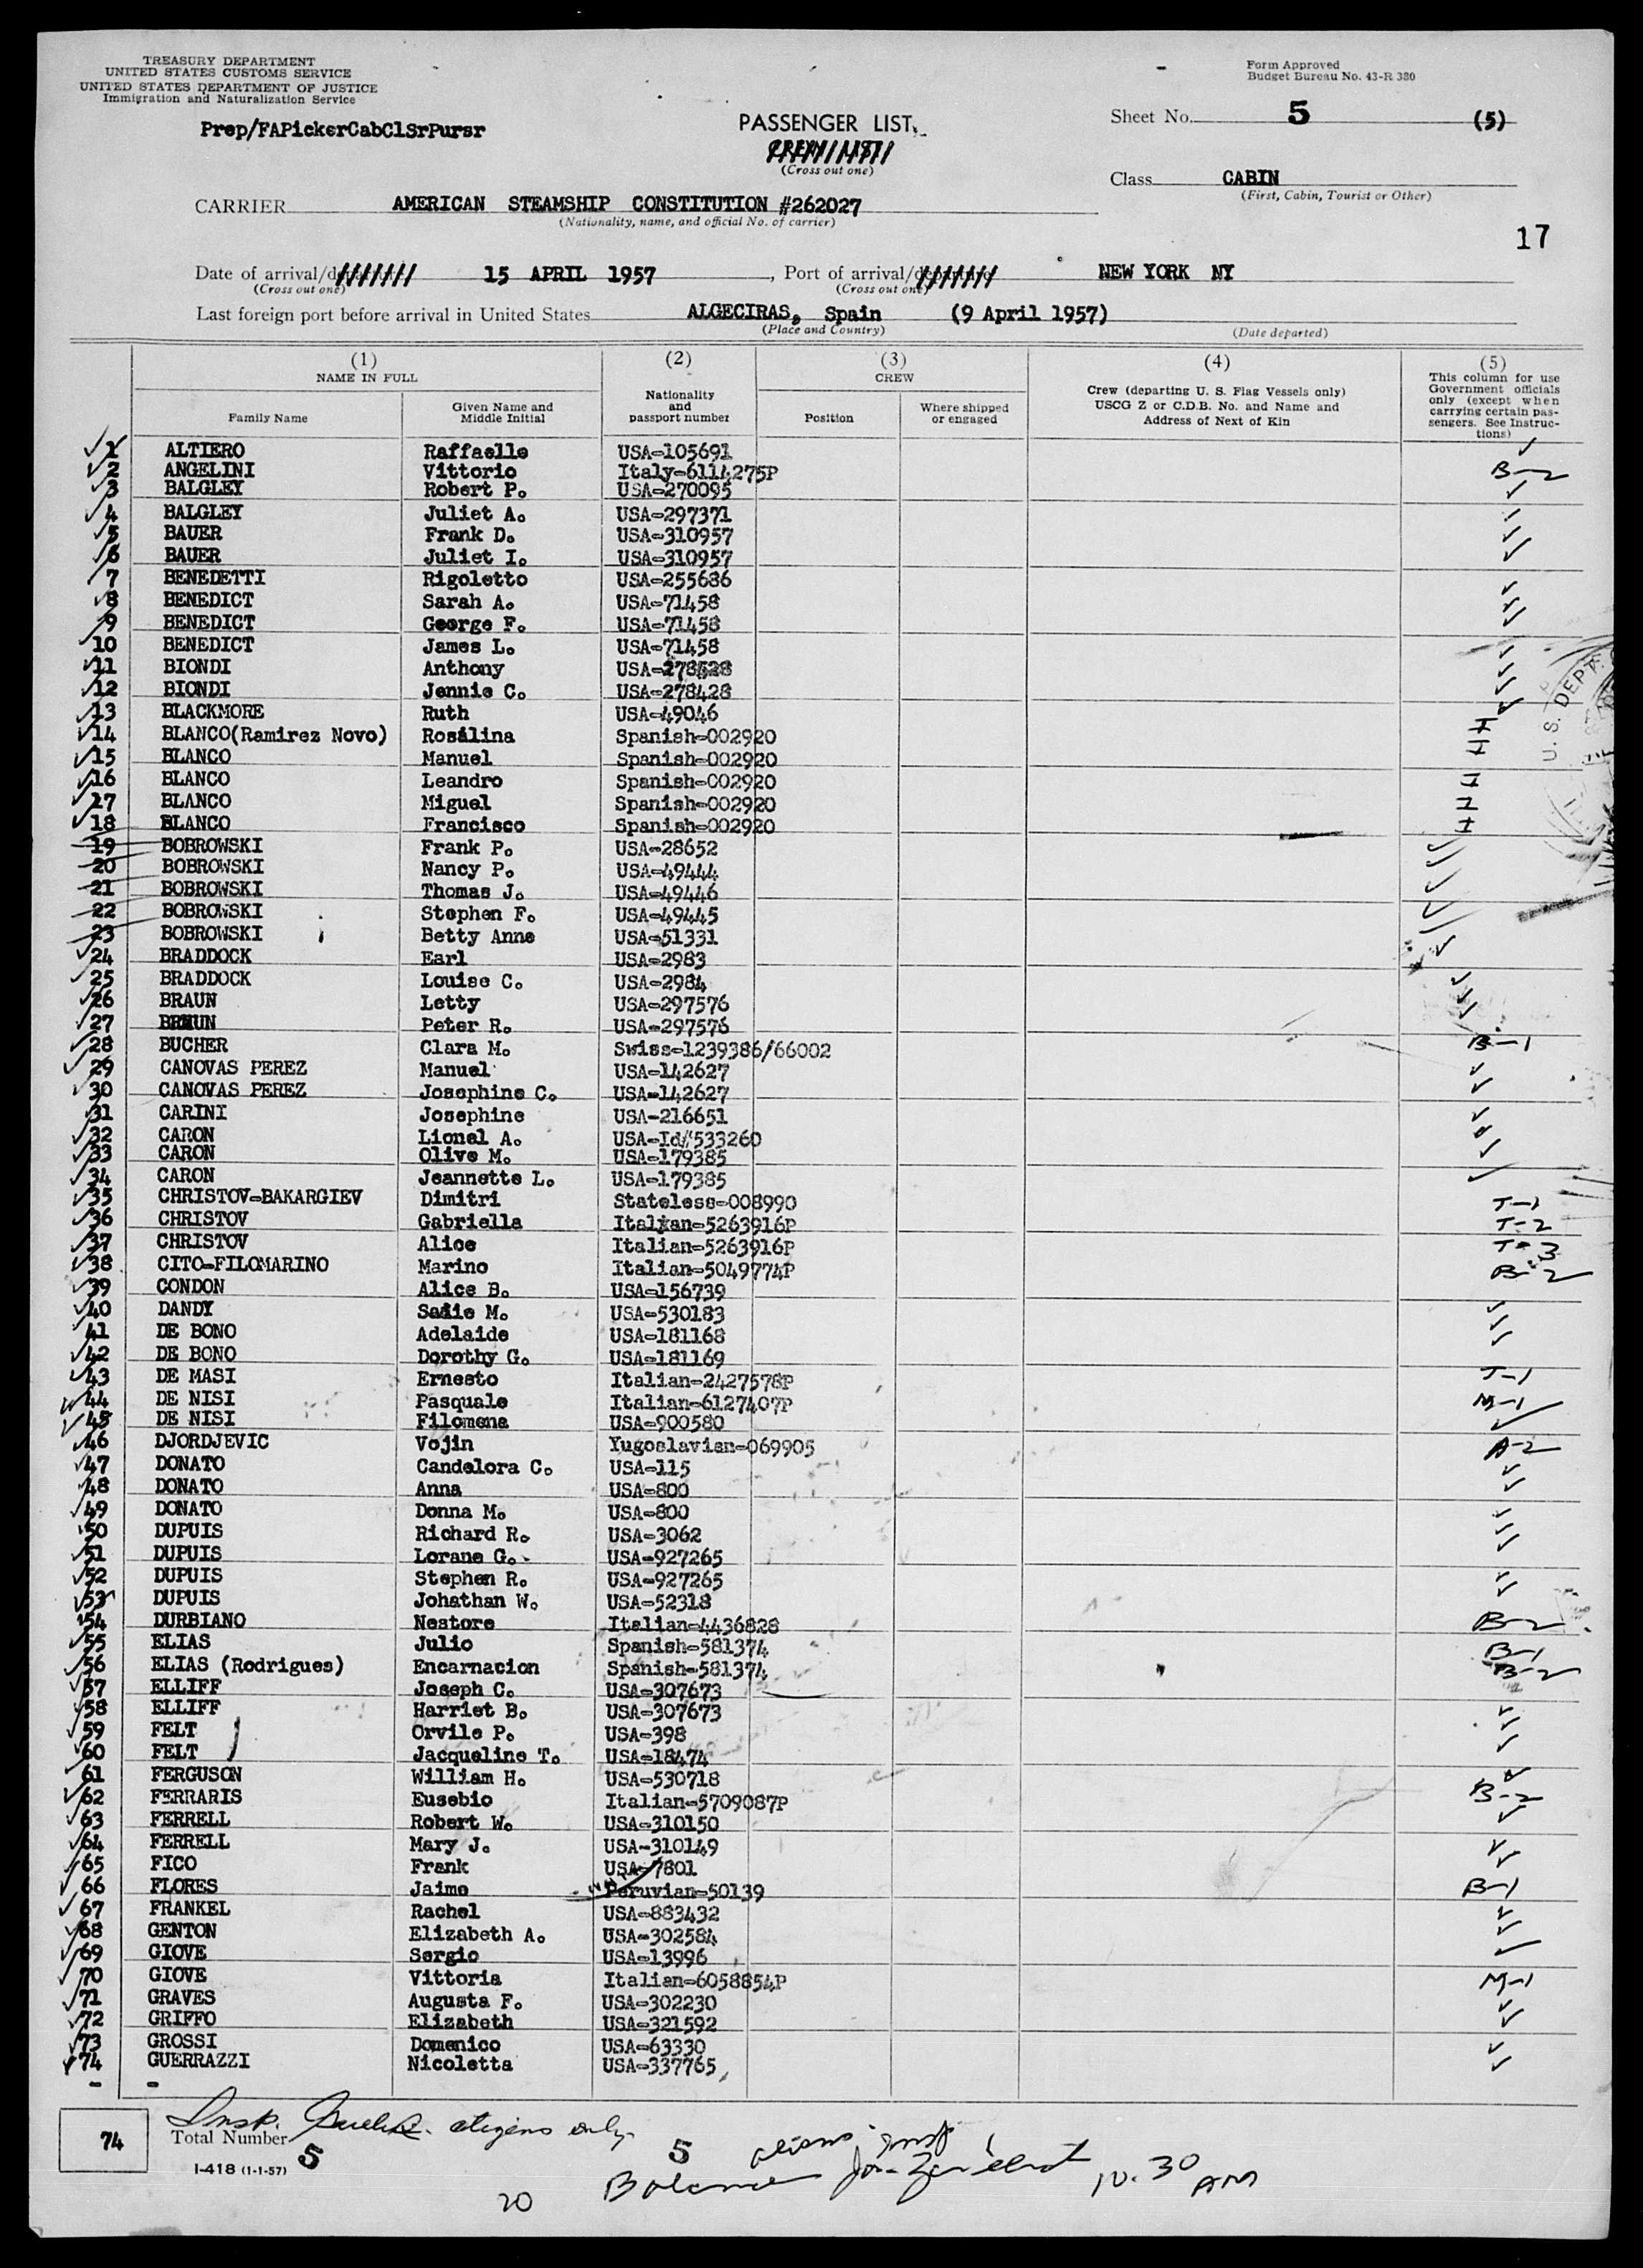 TREASURY DEPARTMENT
UNITED STATES CUSTOMS SERVICE
UNITED STATES DEPARTMENT OF JUSTICE
Immigration and Naturalization Service
Form Approved
Budget Bureau No. 43-R 380
Prep/FAPickerCabClSrPursr
PASSENGER LIST
CREW LIST
(Cross out one)
Sheet No. 5 (5)
Class CABIN
(First, Cabin, Tourist or Other)
CARRIER AMERICAN STEAMSHIP CONSTITUTION #262027
(Nationality, name, and official No. of carrier)
17
Date of arrival/departure 15 APRIL 1957, Port of arrival/departure NEW YORK NY
(Cross out one) (Cross out one)
Last foreign port before arrival in United States ALGECIRAS, Spain (9 April 1957)
(Place and Country) (Date departed)
(1) (2) (3) (4) (5)
NAME IN FULL Nationality and passport number CREW Crew (departing U. S. Flag Vessels only) USCG Z or C.D.B. No. and Name and Address of Next of Kin This column for use Government officials only (except when carrying certain passengers. See Instructions)
Family Name Given Name and Middle Initial Position Where shipped or engaged
1 ALTIERO Raffaelle USA-105691 ✓
2 ANGELINI Vittorio Italy-6114275P B-2
3 BALGLEY Robert P. USA-270095 ✓
4 BALGLEY Juliet A. USA-297371 ✓
5 BAUER Frank D. USA-310957 ✓
6 BAUER Juliet I. USA-310957 ✓
7 BENEDETTI Rigoletto USA-255686 ✓
8 BENEDICT Sarah A. USA-71458 ✓
9 BENEDICT George F. USA-71458 ✓
10 BENEDICT James L. USA-71458 ✓
11 BIONDI Anthony USA-278428 ✓
12 BIONDI Jennie C. USA-278428 ✓
13 BLACKMORE Ruth USA-49046 ✓
14 BLANCO(Ramirez Novo) Rosalina Spanish-002920 H
15 BLANCO Manuel Spanish-002920 H
16 BLANCO Leandro Spanish-002920 H
17 BLANCO Miguel Spanish-002920 H
18 BLANCO Francisco Spanish-002920 H
19 BOBROWSKI Frank P. USA-28652 ✓
20 BOBROWSKI Nancy P. USA-49444 ✓
21 BOBROWSKI Thomas J. USA-49446 ✓
22 BOBROWSKI Stephen F. USA-49445 ✓
23 BOBROWSKI Betty Anne USA-51331 ✓
24 BRADDOCK Earl USA-2983 ✓
25 BRADDOCK Louise C. USA-2984 ✓
26 BRAUN Letty USA-297576 ✓
27 BRAUN Peter R. USA-297576 ✓
28 BUCHER Clara M. Swiss-1239386/66002 B-1
29 CANOVAS PEREZ Manuel USA-142627 ✓
30 CANOVAS PEREZ Josephine C. USA-142627 ✓
31 CARINI Josephine USA-216651 ✓
32 CARON Lionel A. USA-Id#533260 ✓
33 CARON Olive M. USA-179385 ✓
34 CARON Jeannette L. USA-179385 ✓
35 CHRISTOV-BAKARGIEV Dimitri Stateless-008990 T-1
36 CHRISTOV Gabriella Italian-5263916P T-2
37 CHRISTOV Alice Italian-5263916P T-3
38 CITO-FILOMARINO Marino Italian-5049774P B-2
39 CONDON Alice B. USA-156739 ✓
40 DANDY Sadie M. USA-530183 ✓
41 DE BONO Adelaide USA-181168 ✓
42 DE BONO Dorothy G. USA-181169
43 DE MASI Ernesto Italian-2427578P T-1
44 DE NISI Pasquale Italian-6127407P M-1
45 DE NISI Filomena USA-900580 ✓
46 DJORDJEVIC Vojin Yugoslavian-069905 A-2
47 DONATO Candelora C. USA-115 ✓
48 DONATO Anna USA-800 ✓
49 DONATO Donna M. USA-800 ✓
50 DUPUIS Richard R. USA-3062 ✓
51 DUPUIS Lorane G. USA-927265 ✓
52 DUPUIS Stephen R. USA-927265 ✓
53 DUPUIS Johathan W. USA-52318 ✓
54 DURBIANO Nestore Italian-4436828 B-2
55 ELIAS Julio Spanish-581374 B-1
56 ELIAS (Rodrigues) Encarnacion Spanish-581374 B-2
57 ELLIFF Joseph C. USA-307673
58 ELLIFF Harriet B. USA-307673 ✓
59 FELT Orvile P. USA-398 ✓
60 FELT Jacqueline T. USA-18474 ✓
61 FERGUSON William H. USA-530718 ✓
62 FERRARIS Eusebio Italian-5709087P B-2
63 FERRELL Robert W. USA-310150 ✓
64 FERRELL Mary J. USA-310149 ✓
65 FICO Frank USA-7801 ✓
66 FLORES Jaime Peruvian-50139 B-1
67 FRANKEL Rachel USA-883432 ✓
68 GENTON Elizabeth A. USA-302584 ✓
69 GIOVE Sergio USA-13996 ✓
70 GIOVE Vittoria Italian-6058854P M-1
71 GRAVES Augusta F. USA-302230 ✓
72 GRIFFO Elizabeth USA-321592 ✓
73 GROSSI Domenico USA-63330 ✓
74 GUERRAZZI Nicoletta USA-337765 ✓
U. S. DEPT.
Insp. citizens only
74 Total Number 5 5 aliens Insp
I-418 (1-1-57)
20 Balance 10.30 AM